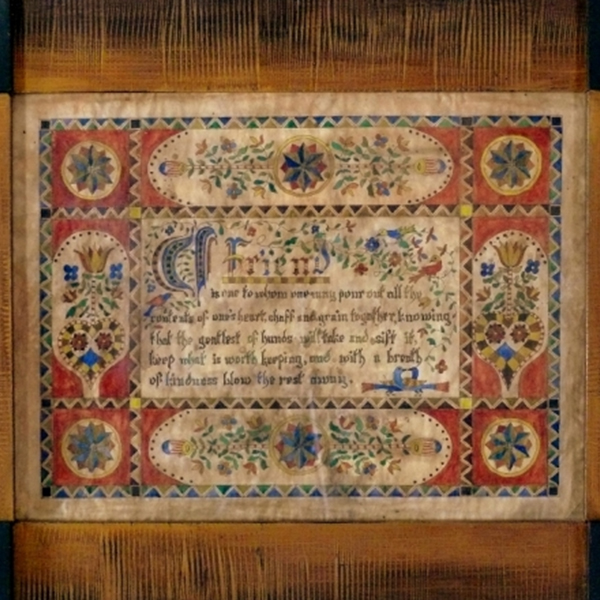 A Friend
is one to whom one may pour out all the
contents of one's heart, chaff and grain together, knowing
that the gentlest of hands will take and sift it,
keep what is worth keeping, and with a breath
of kindness blow the rest away.